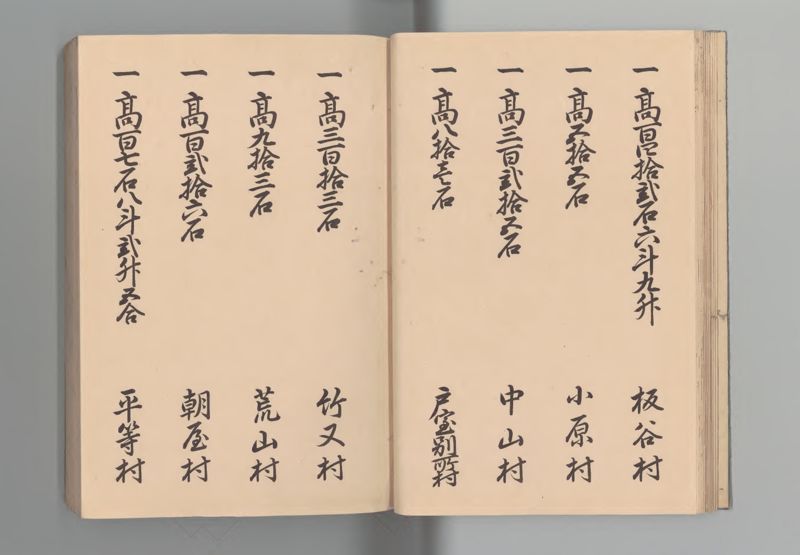 一高百四拾弐石六斗九升 板谷村
一高五拾五石 小原村
一高三百弐拾五石 中山村
一高八拾壱石 戸室別所村
一高三百拾三石 竹又村
一高九拾三石 荒山村
一高百弐拾六石 朝屋村
一高百七石八斗弐升五合 平等村